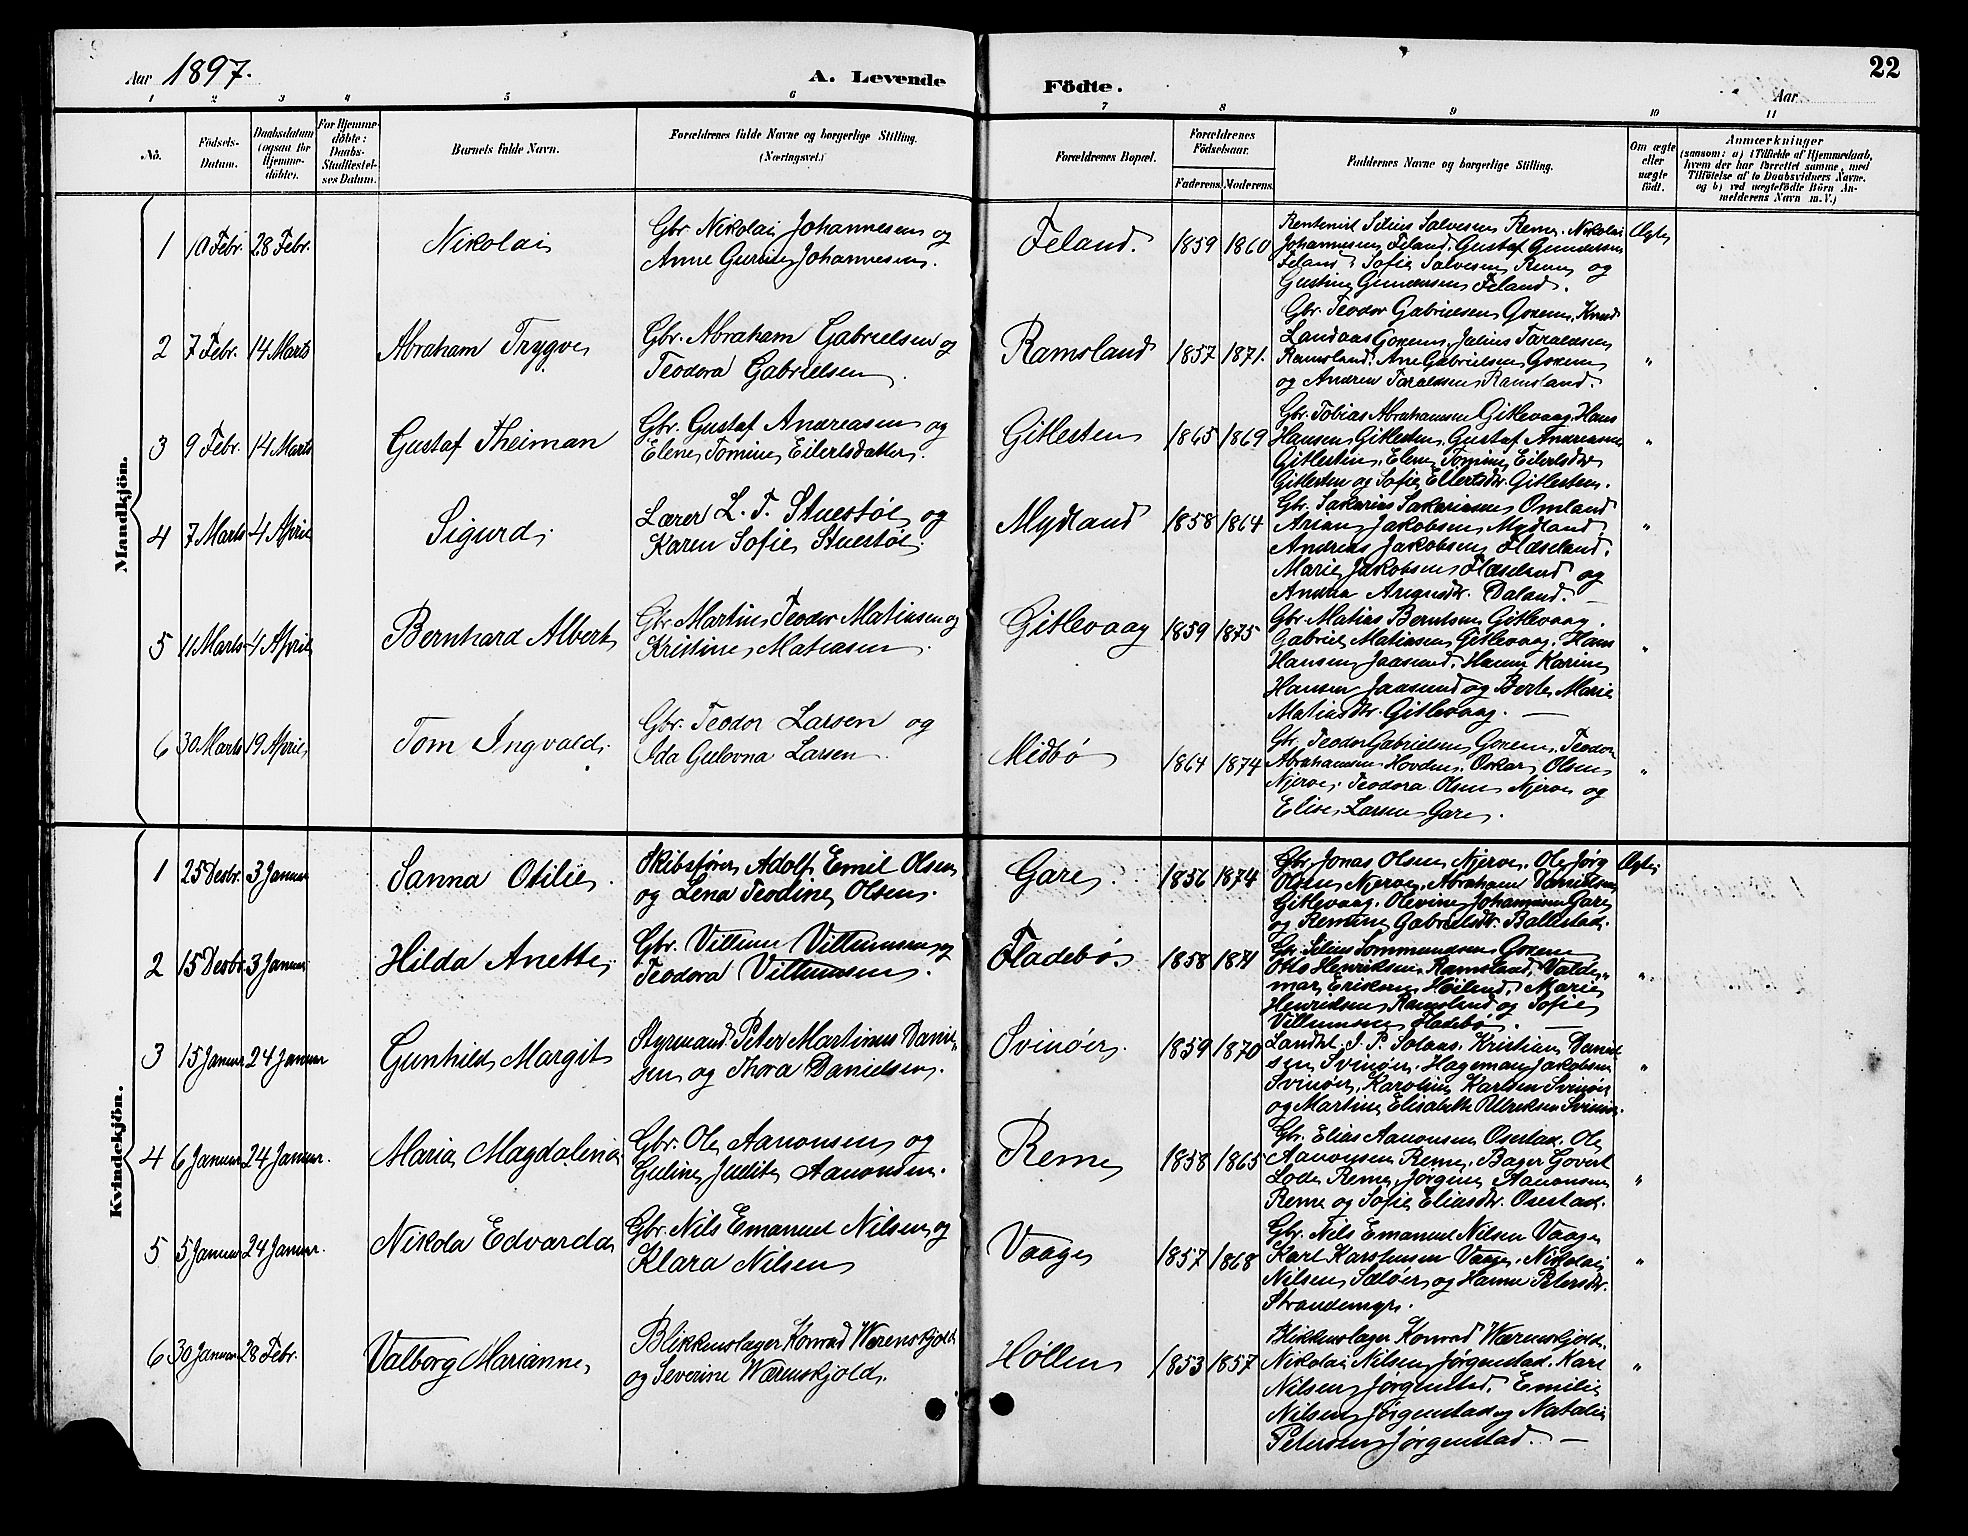 Aar 1897.
A. Levende
Födte.
22
Aar
1 2 3 4 5 6 7 8 9 10 11
No.
Födsels-
Datum.
Daabsdatum
(ogsaa for
Hjemme-
döbte).
For Hjemme-
döbte:
Daabs-
Stadfæstel-
ses Datum.
Barnets fulde Navn.
Forældrenes fulde Navne og borgerlige Stilling.
(Næringsvei.)
Forældrenes Bopæl.
Forældrenes
Födselsaar.
Faderens. Moderens.
Faddernes Navne og borgerlige Stilling.
Om ægte
eller
uægte
födt.
Anmærkninger
(saasom: a) i Tilfælde af Hjemmedaab,
hvem der har forrettet samme, med
Tilföielse af to Daabsvidners Navne.
og b) ved uægtefödte Börn An-
melderens Navn m.V.)
Mandkjön.
1 10 Febr. 28 Febr. Nikolai
Gbr Nikolai Johannesen og
Anne Gurine Johannesen.
Feland. 1859 1860
Rentenist Silius Salvesen Reme, Nikolai
Johannesen Feland, Gustaf Gundersen
Feland, Sofie Salvesen Reme og
Gustine Gundersen Feland.
Ægte
2 7 Febr. 14 Marts Abraham Trygve
Gbr. Abraham Gabrielsen og
Teodora Gabrielsen.
Ramsland 1857 1871.
Gbr. Teodor Gabrielsen Goxem, Knud
Landaas Goxem, Julius Taraldsen
Ramsland, Ane Gabrielsen Goxem
og Andrea Taraldsen Ramsland.
"
3 9 Febr. 14 Marts Gustaf Theiman
Gbr. Gustaf Andreasen og
Elene Tomine Eilertsdatter.
Gitlesten 1865 1869
Gbr. Tobias Abrahamsen Gitlevaag, Hans
Hansen Gitlesten, Gustaf Andreasen
Gitlesten, Elene Tomine Eilertsdtr
Gitlesten og Sofie Eilertsdtr. Gitlesten.
"
4 7 Marts 4 April Sigurd
Lærer L. T. Stuestøl og
Karen Sofie Stuestøl.
Mydland 1858 1864
Gbr. Sakarias Sakariasen Omland
Arian Jakobsen Mydland,
Andreas Jakobsen Flæseland,
Marie Jakobsen Flæseland og
Andrea Arigusdtr. Daland. —
"
5 11 Marts 4 April Bernhard Albert
Gbr Martin Teodor Matiasen og
Kristine Matiasen.
Gitlevaag 1859 1875
Gbr. Matias Berntsen Gitlevaag.
Gabriel Matiasen Gitlevaag. Hans
Hansen Jaasund, Hanne Karine
Hansen Jaasund og Berte Marie
Matiasdtr. Gitlevaag. —
"
6 30 Marts 19 April Tom Ingvald.
Gbr. Teodor Larsen og
Ida Gulovna Larsen.
Midbø 1864 1874
Gbr. Teodor Gabrielsen Goxem, Teodor
Abrahamsen Hovden, Oskar Olsen
Njerve, Teodora Olsen Njerve og
Elise Larsen Gare.
"
Kvindekjön.
1 25 Desbr. 3 Januar Sanna Otilie.
Skibsfører Adolf Emil Olsen
og Lena Teodine Olsen.
Gare. 1856 1874
Gbr Jonas Olsen Njerve, Ole Jørg
Olsen Njerve, Abraham Danielsen
Gitlevaag, Olevine Johannesen Gare
og Remine Gabrielsdtr. Ballestad.
Ægte
2 15 Desbr. 3 Januar Hilda Anette
Gbr. Villum Villumsen og
Teodora Villumsen.
Fladebø. 1858 1871
Gbr. Silius Sommundsen Goxem
Otto Henriksen Ramsland, Valde-
mar Eriksen Høilund, Marie
Henriksen Ramsland og Sofie
Villumsen Fladebø. —
"
3 15 Januar 24 Januar Gunhild Margit
Styrmand Peter Martinus Daniel-
sen og Thora Danielsen.
Svinøer. 1859 1870
Landhl. S. P. Solaas, Kristian Daniel-
sen Svinøer, Hageman Jakobsen
Svinøer, Karoline Karlsen Svinøer
og Martine Elisabeth Ulriksen Svinøer.
"
4 6 Januar 24 Januar. Maria Magdalena
Gbr. Ole Aanonsen og
Guline Judite Aanonsen.
Reme 1858 1865
Gbr. Elias Aanonsen Osestad, Ole
Aanonsen Reme, Bager Govert
Lode Reme, Jørgine Aanonsen
Reme og Sofie Eliasdtr. Osestad.
"
5 5 Januar 24 Januar. Nikola Edvarda
Gbr. Nils Emanuel Nilsen og
Klara Nilsen
Vaage 1857 1868
Gbr. Nils Emanuel Nilsen Vaage
Karl Karstensen Vaage, Nikolai
Nilsen Sæløer og Hanne Petersdtr.
Strandemyr.
"
6 30 Januar 28 Febr. Valborg Marianne
Blikkenslager Konrad Wærenskjold
og Severine Wærenskjold.
Høllen 1853 1857
Blikkenslager Konrad Wærenskjold,
Nikolai Nilsen Jørgenstad, Karl
Nilsen Jørgenstad, Emilie
Nilsen Jørgenstad og Natalie
Petersen Jørgenstad. —
"